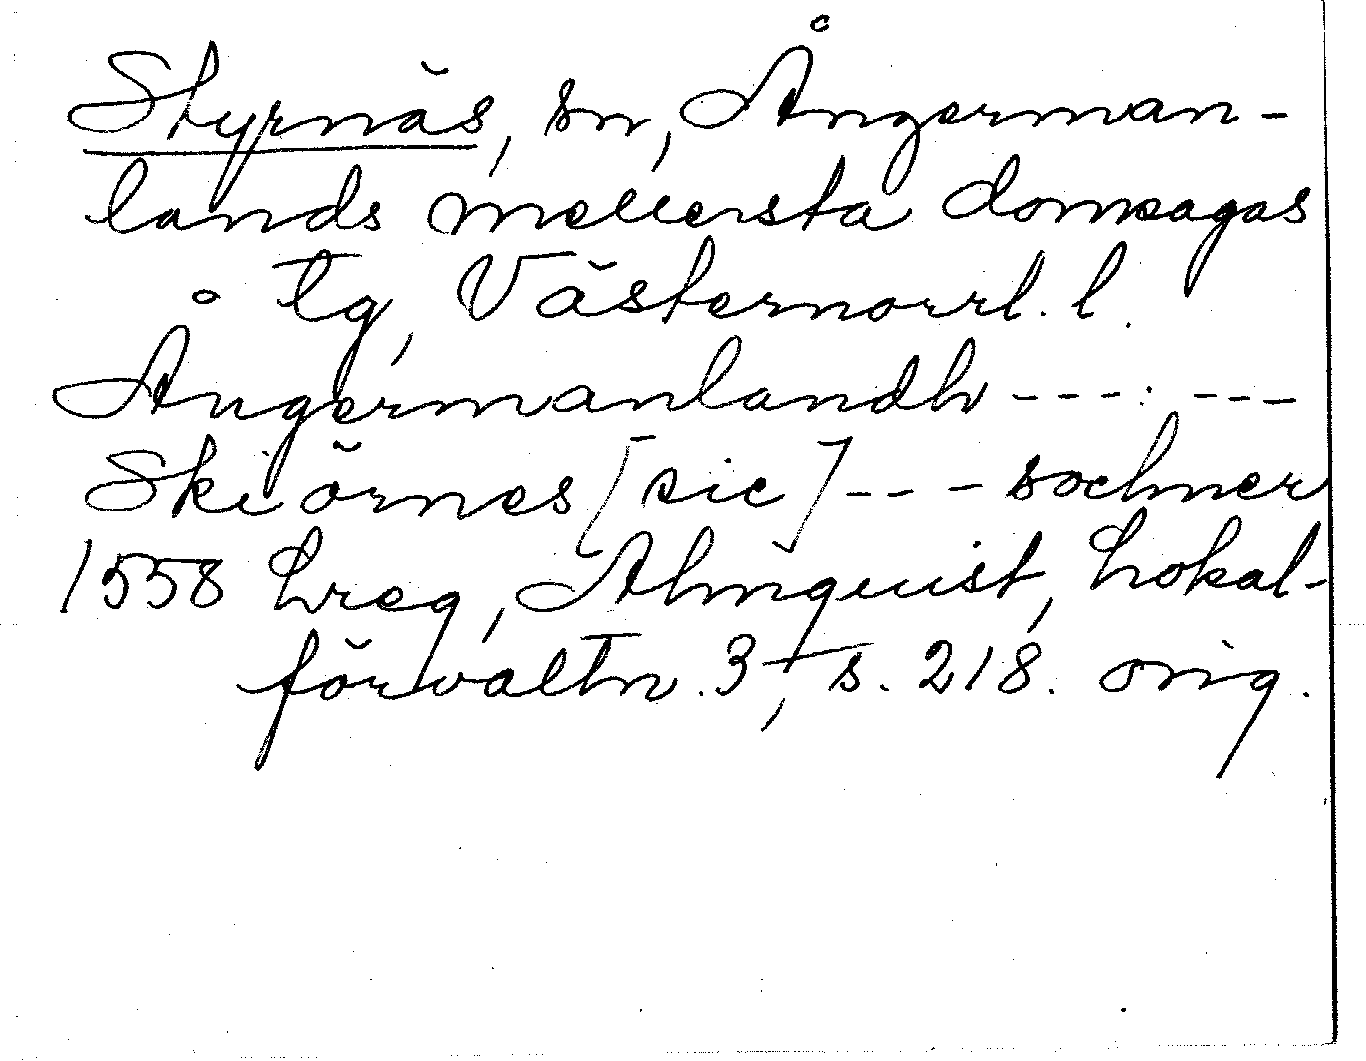 Styrnäs, sn, Ångerman-
lands mellersta domsagas
tg, Västernorrl. l.
Ångermanlandh --- : ---
Skiörnes [sic] --- sochner
1558 Lreg, Almquist, Lokal-
förvaltn. 3, s. 218. orig.